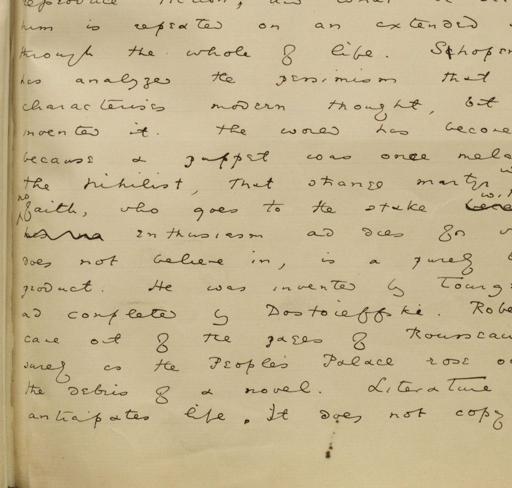 reproduce fiction, and what
him is repeated on an extended
through the whole of life. Schopen
has analyzed the pessimism that
characterises modern thought, but
invented it. The world has become
because a puppet was once mela
the Nihilist, that strange martyr w
no faith, who goes to the stake
enthusiasm and dies for w
does not believe in, is a purely
product. He was invented by Tourg
and completed by Dostoieffski. Robe
came out of the pages of Rousseau
surely as the People's Palace rose o
the debris of a novel. Literature
anticipates life. It does not copy